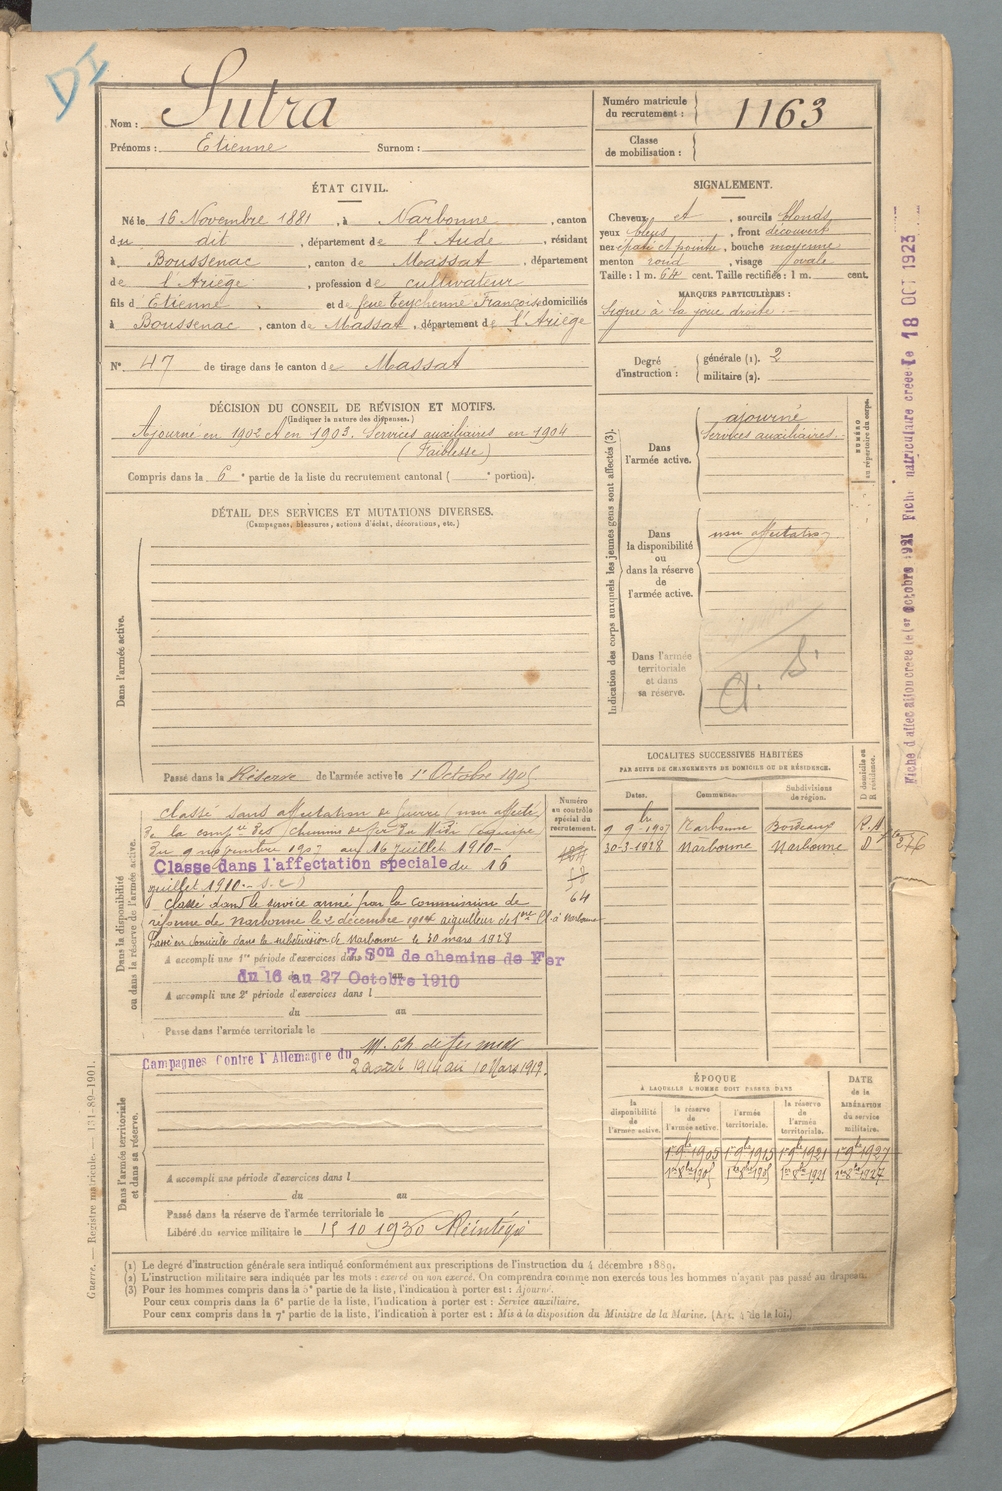 DI
Nom : Sutra
Prénoms : Etienne Surnom :
Numéro matricule du recrutement : 1163
Classe de mobilisation :
ÉTAT CIVIL.
Né le 16 Novembre 1881, à Narbonne, canton
du dit, département de l'Aude, résidant
à Boussenac, canton de Massat, département
de l'Ariège, profession de cultivateur
fils d'Etienne et de feue Teychenne Françoise domiciliés
à Boussenac, canton de Massat, département de l'Ariège
N° 47 de tirage dans le canton de Massat
SIGNALEMENT.
Cheveux et, sourcils blonds
yeux bleus, front découvert
nez épaté et pointu, bouche moyenne
menton rond, visage ovale
Taille : 1 m. 64 cent. Taille rectifiée : 1 m. cent.
MARQUES PARTICULIÈRES :
Signe à la joue droite.
Degré d'instruction : générale (1). 2
militaire (2).
DÉCISION DU CONSEIL DE RÉVISION ET MOTIFS.
(Indiquer la nature des dispenses.)
Ajourné en 1902 et en 1903. Services auxiliaires en 1904
(Faiblesse)
Compris dans la 6e partie de la liste du recrutement cantonal ( e portion).
DÉTAIL DES SERVICES ET MUTATIONS DIVERSES.
(Campagnes, blessures, actions d'éclat, décorations, etc.)
Dans l'armée active.
Passé dans la Réserve de l'armée active le 1er Octobre 1905
Indication des corps auxquels les jeunes gens sont affectés (3).
NUMÉRO au répertoire du corps.
Dans l'armée active.
ajourné
Services auxiliaires.
Dans la disponibilité ou dans la réserve de l'armée active.
non affectation
Dans l'armée territoriale et dans sa réserve.
Fiche d'affectation créée le 1er Octobre 1921 Fiche matriculaire créée le 18 OCT 1923
Dans la disponibilité ou dans la réserve de l'armée active.
Classé sans affectation de guerre (non affecté)
de la compie des Chemins de fer du Midi (équipe
du 9 novembre 1907 au 16 juillet 1910-
Classé dans l'affectation spéciale du 16
juillet 1910.-
Classé dans le service armé par la Commission de
réforme de Narbonne le 2 décembre 1914 aiguilleur de 1ère Cl. à Narbonne
Passé en domicile dans la subdivision de Narbonne le 30 mars 1928
A accompli une 1re période d'exercices dans 7 Son de chemins de Fer
du 16 au 27 Octobre 1910
A accompli une 2e période d'exercices dans l
du au
Passé dans l'armée territoriale le
Numéro au contrôle spécial du recrutement.
64
LOCALITÉS SUCCESSIVES HABITÉES
PAR SUITE DE CHANGEMENTS DE DOMICILE OU DE RÉSIDENCE.
Dates. Communes. Subdivisions de région. D domicile ou R résidence.
9 9bre 1907 Narbonne Bordeaux R.
30-3-1928 Narbonne Narbonne D
Dans l'armée territoriale et dans sa réserve.
Campagnes Contre l'Allemagne du
2 août 1914 au 10 Mars 1919.
A accompli une période d'exercices dans l
du au
Passé dans la réserve de l'armée territoriale le
Libéré du service militaire le 15 10 1930 Réintégré
ÉPOQUE
À LAQUELLE L'HOMME DOIT PASSER DANS
la disponibilité de l'armée active. la réserve de l'armée active. l'armée territoriale. la réserve de l'armée territoriale. DATE de la LIBÉRATION du service militaire.
1er 9bre 1905 1er 9bre 1915 1er 9bre 1921 1er 9bre 1927
1er 8bre 1905 1er 8bre 1915 1er 8bre 1921 1er 8bre 1927
Guerre. — Registre matricule. — 131-89-1901.
(1) Le degré d'instruction générale sera indiqué conformément aux prescriptions de l'instruction du 4 décembre 1889.
(2) L'instruction militaire sera indiquée par les mots : exercé ou non exercé. On comprendra comme non exercés tous les hommes n'ayant pas passé au drapeau.
(3) Pour les hommes compris dans la 5e partie de la liste, l'indication à porter est : Ajourné.
Pour ceux compris dans la 6e partie de la liste, l'indication à porter est : Service auxiliaire.
Pour ceux compris dans la 7e partie de la liste, l'indication à porter est : Mis à la disposition du Ministre de la Marine. (Art. 4 de la loi.)